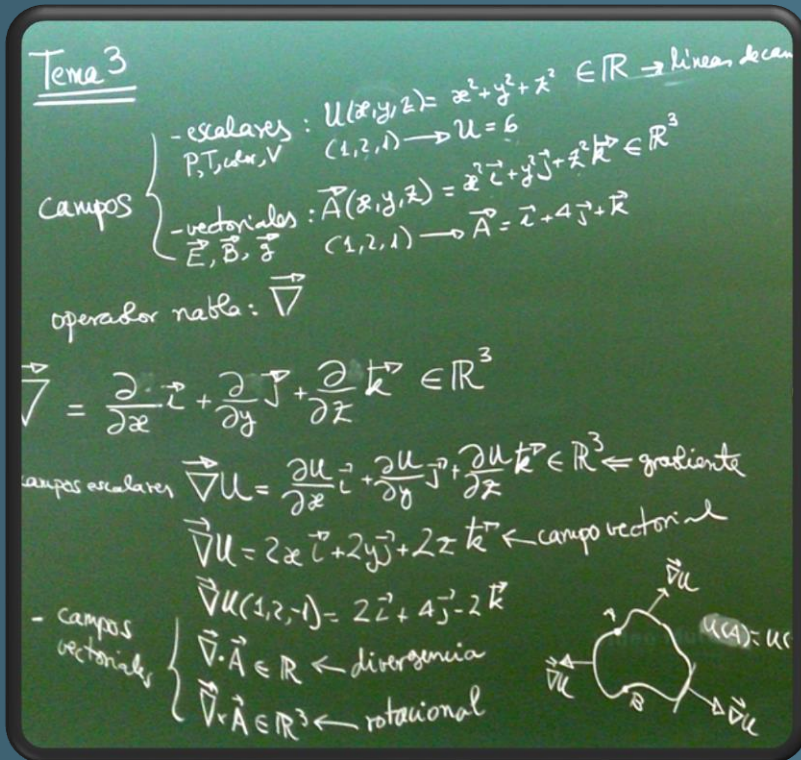 Tema 3
campos
- escalares : U(x,y,z) = x² + y² + z² ∈ ℝ → lineas de cam
P, T, color, V (1,2,1) → U = 6
- vectoriales : A⃗(x,y,z) = x² i⃗ + y² j⃗ + z² k⃗ ∈ ℝ³
E⃗, B⃗, g⃗ (1,2,1) → A⃗ = i⃗ + 4 j⃗ + k⃗
operador nabla : ∇⃗
∇⃗ = ∂/∂x i⃗ + ∂/∂y j⃗ + ∂/∂z k⃗ ∈ ℝ³
campos escalares ∇⃗U = ∂U/∂x i⃗ + ∂U/∂y j⃗ + ∂U/∂z k⃗ ∈ ℝ³ ← gradiente
∇⃗U = 2x i⃗ + 2y j⃗ + 2z k⃗ ← campo vectorial
∇⃗U(1,2,-1) = 2 i⃗ + 4 j⃗ - 2 k⃗
- campos vectoriales
∇⃗·A⃗ ∈ ℝ ← divergencia
∇⃗×A⃗ ∈ ℝ³ ← rotacional
∇⃗U
A
U(A) = U(
∇⃗U
B
∇⃗U